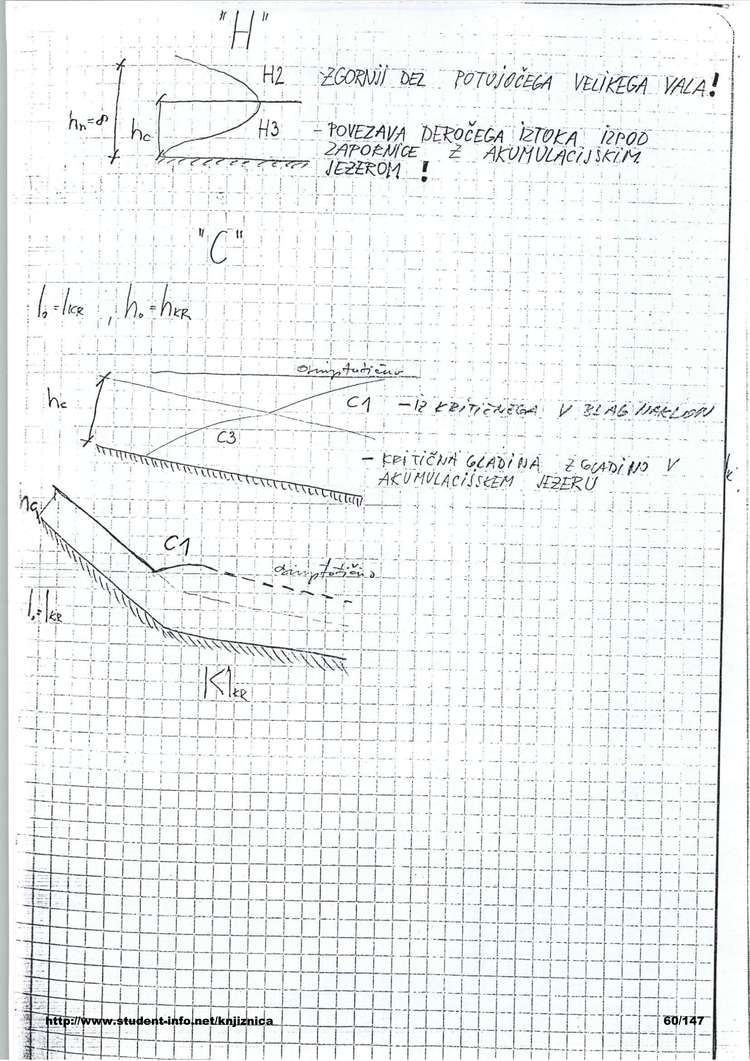 "H"
H2 ZGORNJI DEL POTUJOČEGA VELIKEGA VALA!
hn=∞ hc H3 - POVEZAVA DEROČEGA IZTOKA IZPOD
ZAPORNICE Z AKUMULACIJSKIM
JEZEROM !
"C"
I0=IKR , h0=hKR
asimptotično
hc C1 - IZ KRITIČNEGA V BLAG NAKLON
C3
- KRITIČNA GLADINA Z GLADINO V
AKUMULACIJSKEM JEZERU
C1
asimptotično
I0=IKR
I<IKR
http://www.student-info.net/knjiznica 60/147